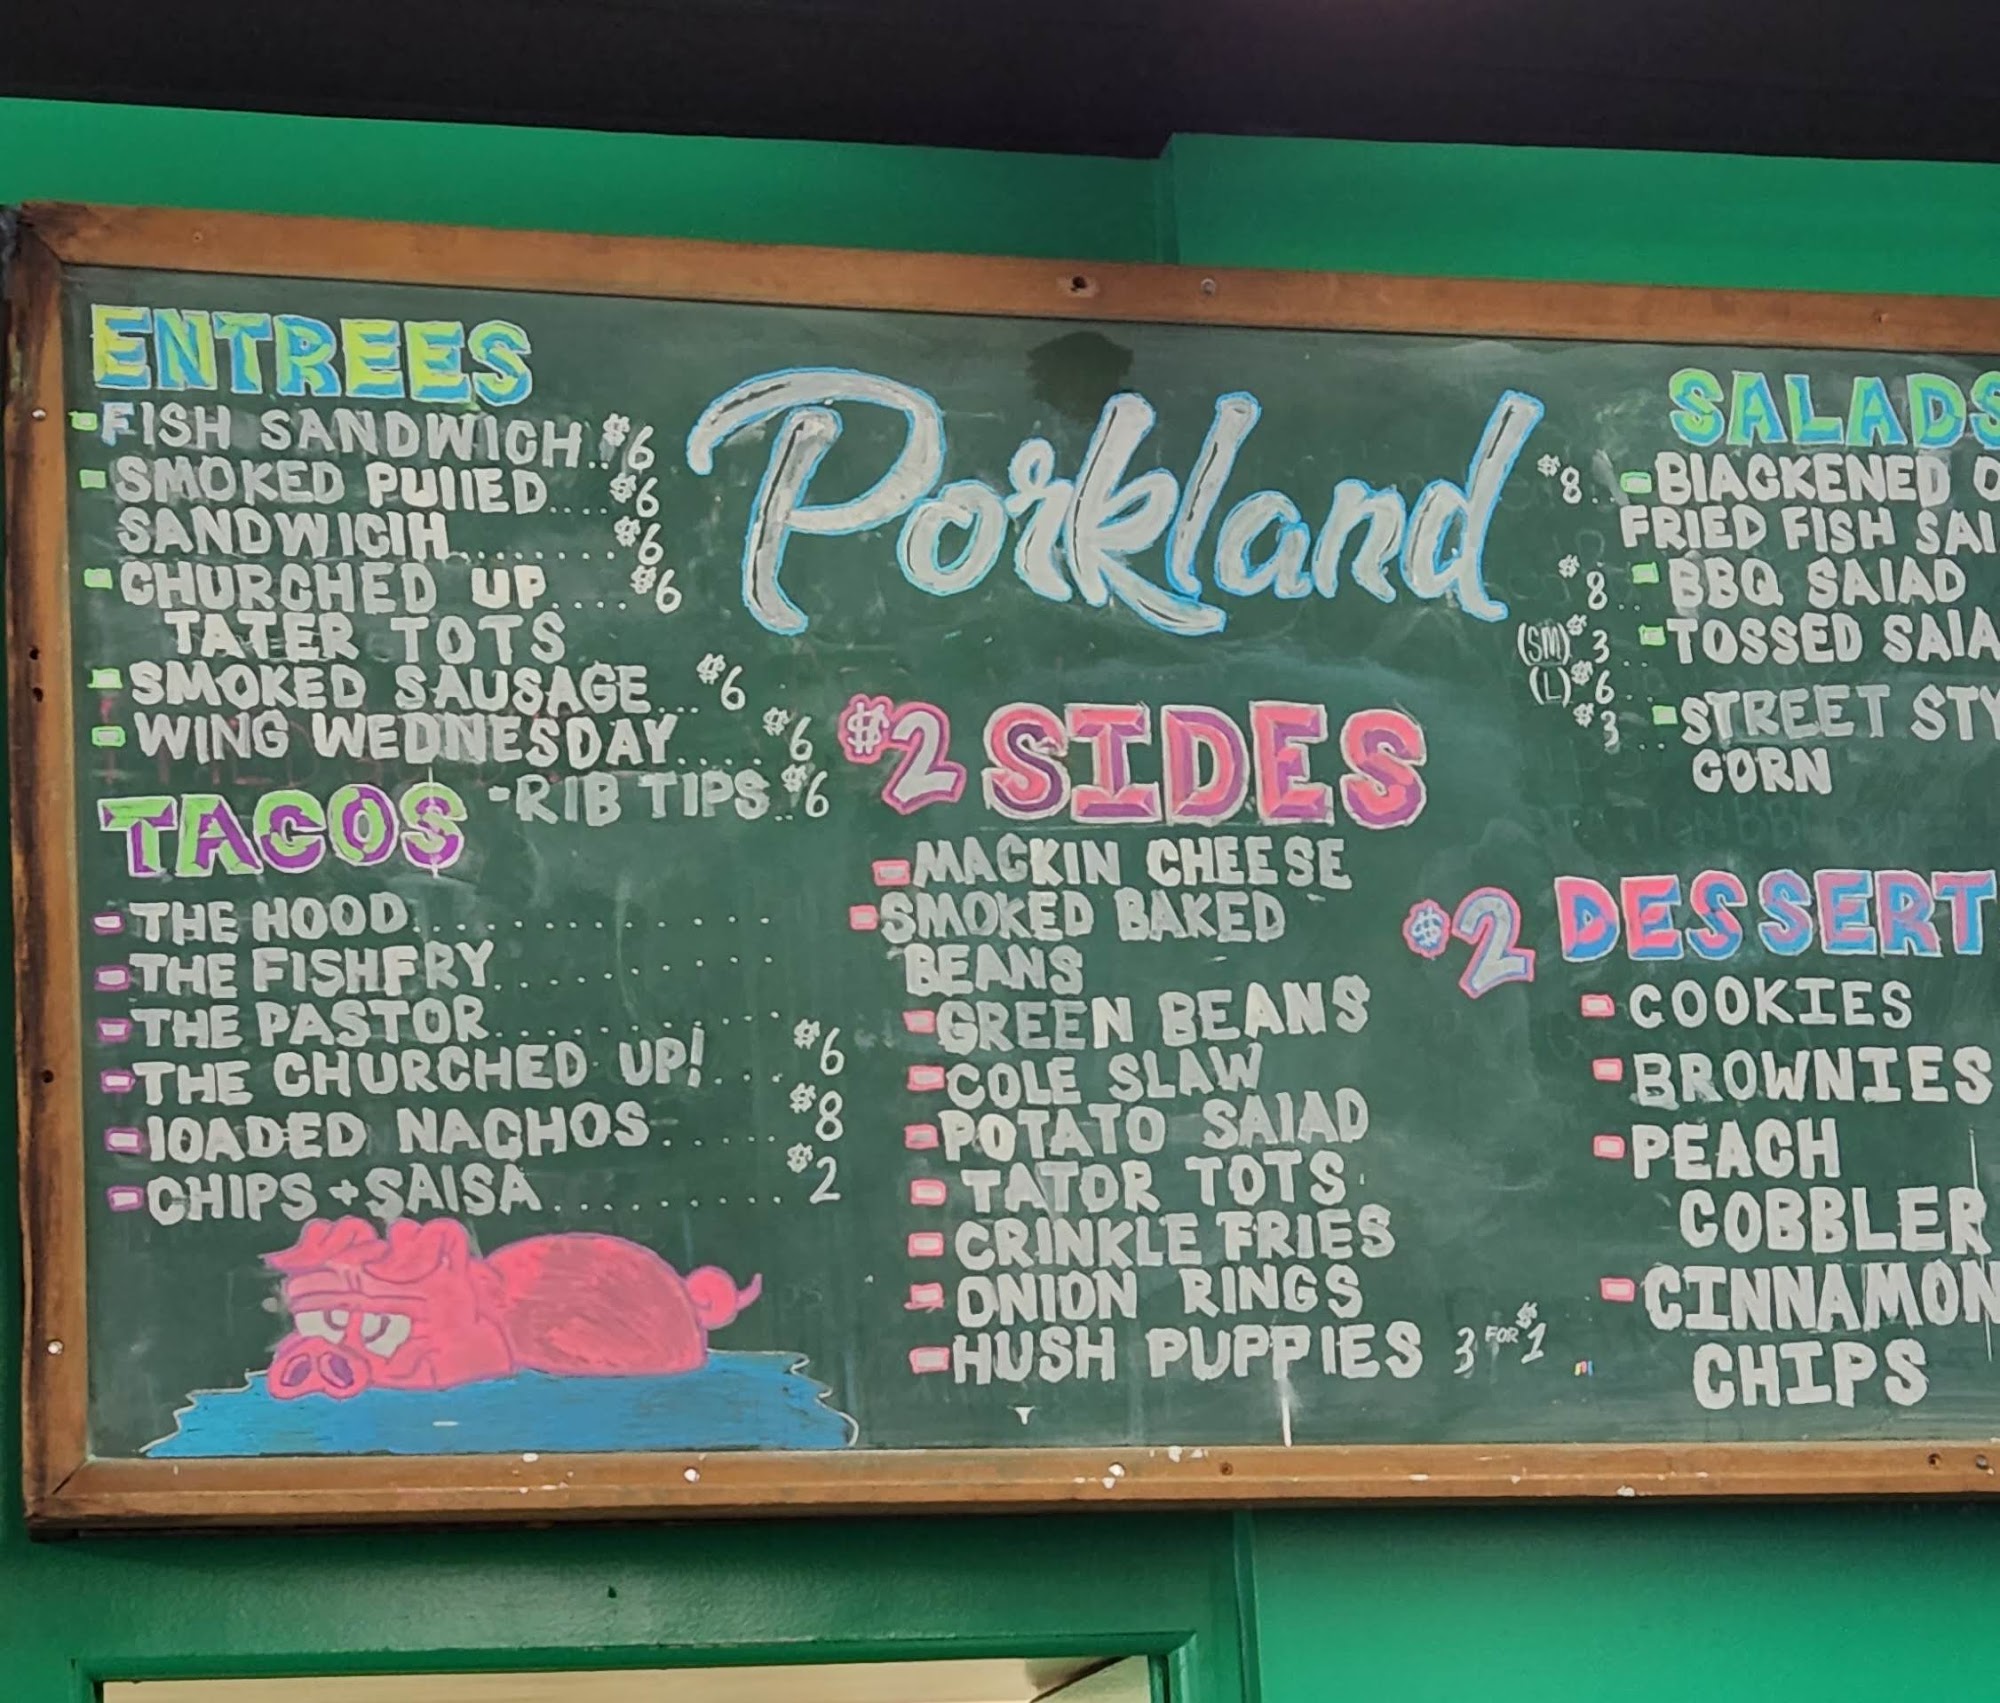 ENTREES
FISH SANDWICH.. $6
SMOKED PUllED.... $6
SANDWICIH......... $6
CHURCHED UP.... $6
TATER TOTS
SMOKED SAUSAGE... $6
WING WEDNESDAY..... $6
-RIB TIPS.. $6
TACOS
THE HOOD
THE FISHFRY
THE PASTOR
THE CHURCHED UP!... $6
lOADED NACHOS...... $8
CHIPS + SAlSA.......... $2
Porkland
$2 SIDES
MACKIN CHEESE
SMOKED BAKED
BEANS
GREEN BEANS
COLE SLAW
POTATO SAlAD
TATOR TOTS
CRINKLE FRIES
ONION RINGS
HUSH PUPPIES 3 FOR $1
SALADS
$8.. BlACKENED O
FRIED FISH SAl
$8.. BBQ SAlAD
(SM) $3.. TOSSED SAlA
(L) $6..
$3.. STREET STY
CORN
$2 DESSERT
COOKIES
BROWNIES
PEACH
COBBLER
CINNAMON
CHIPS